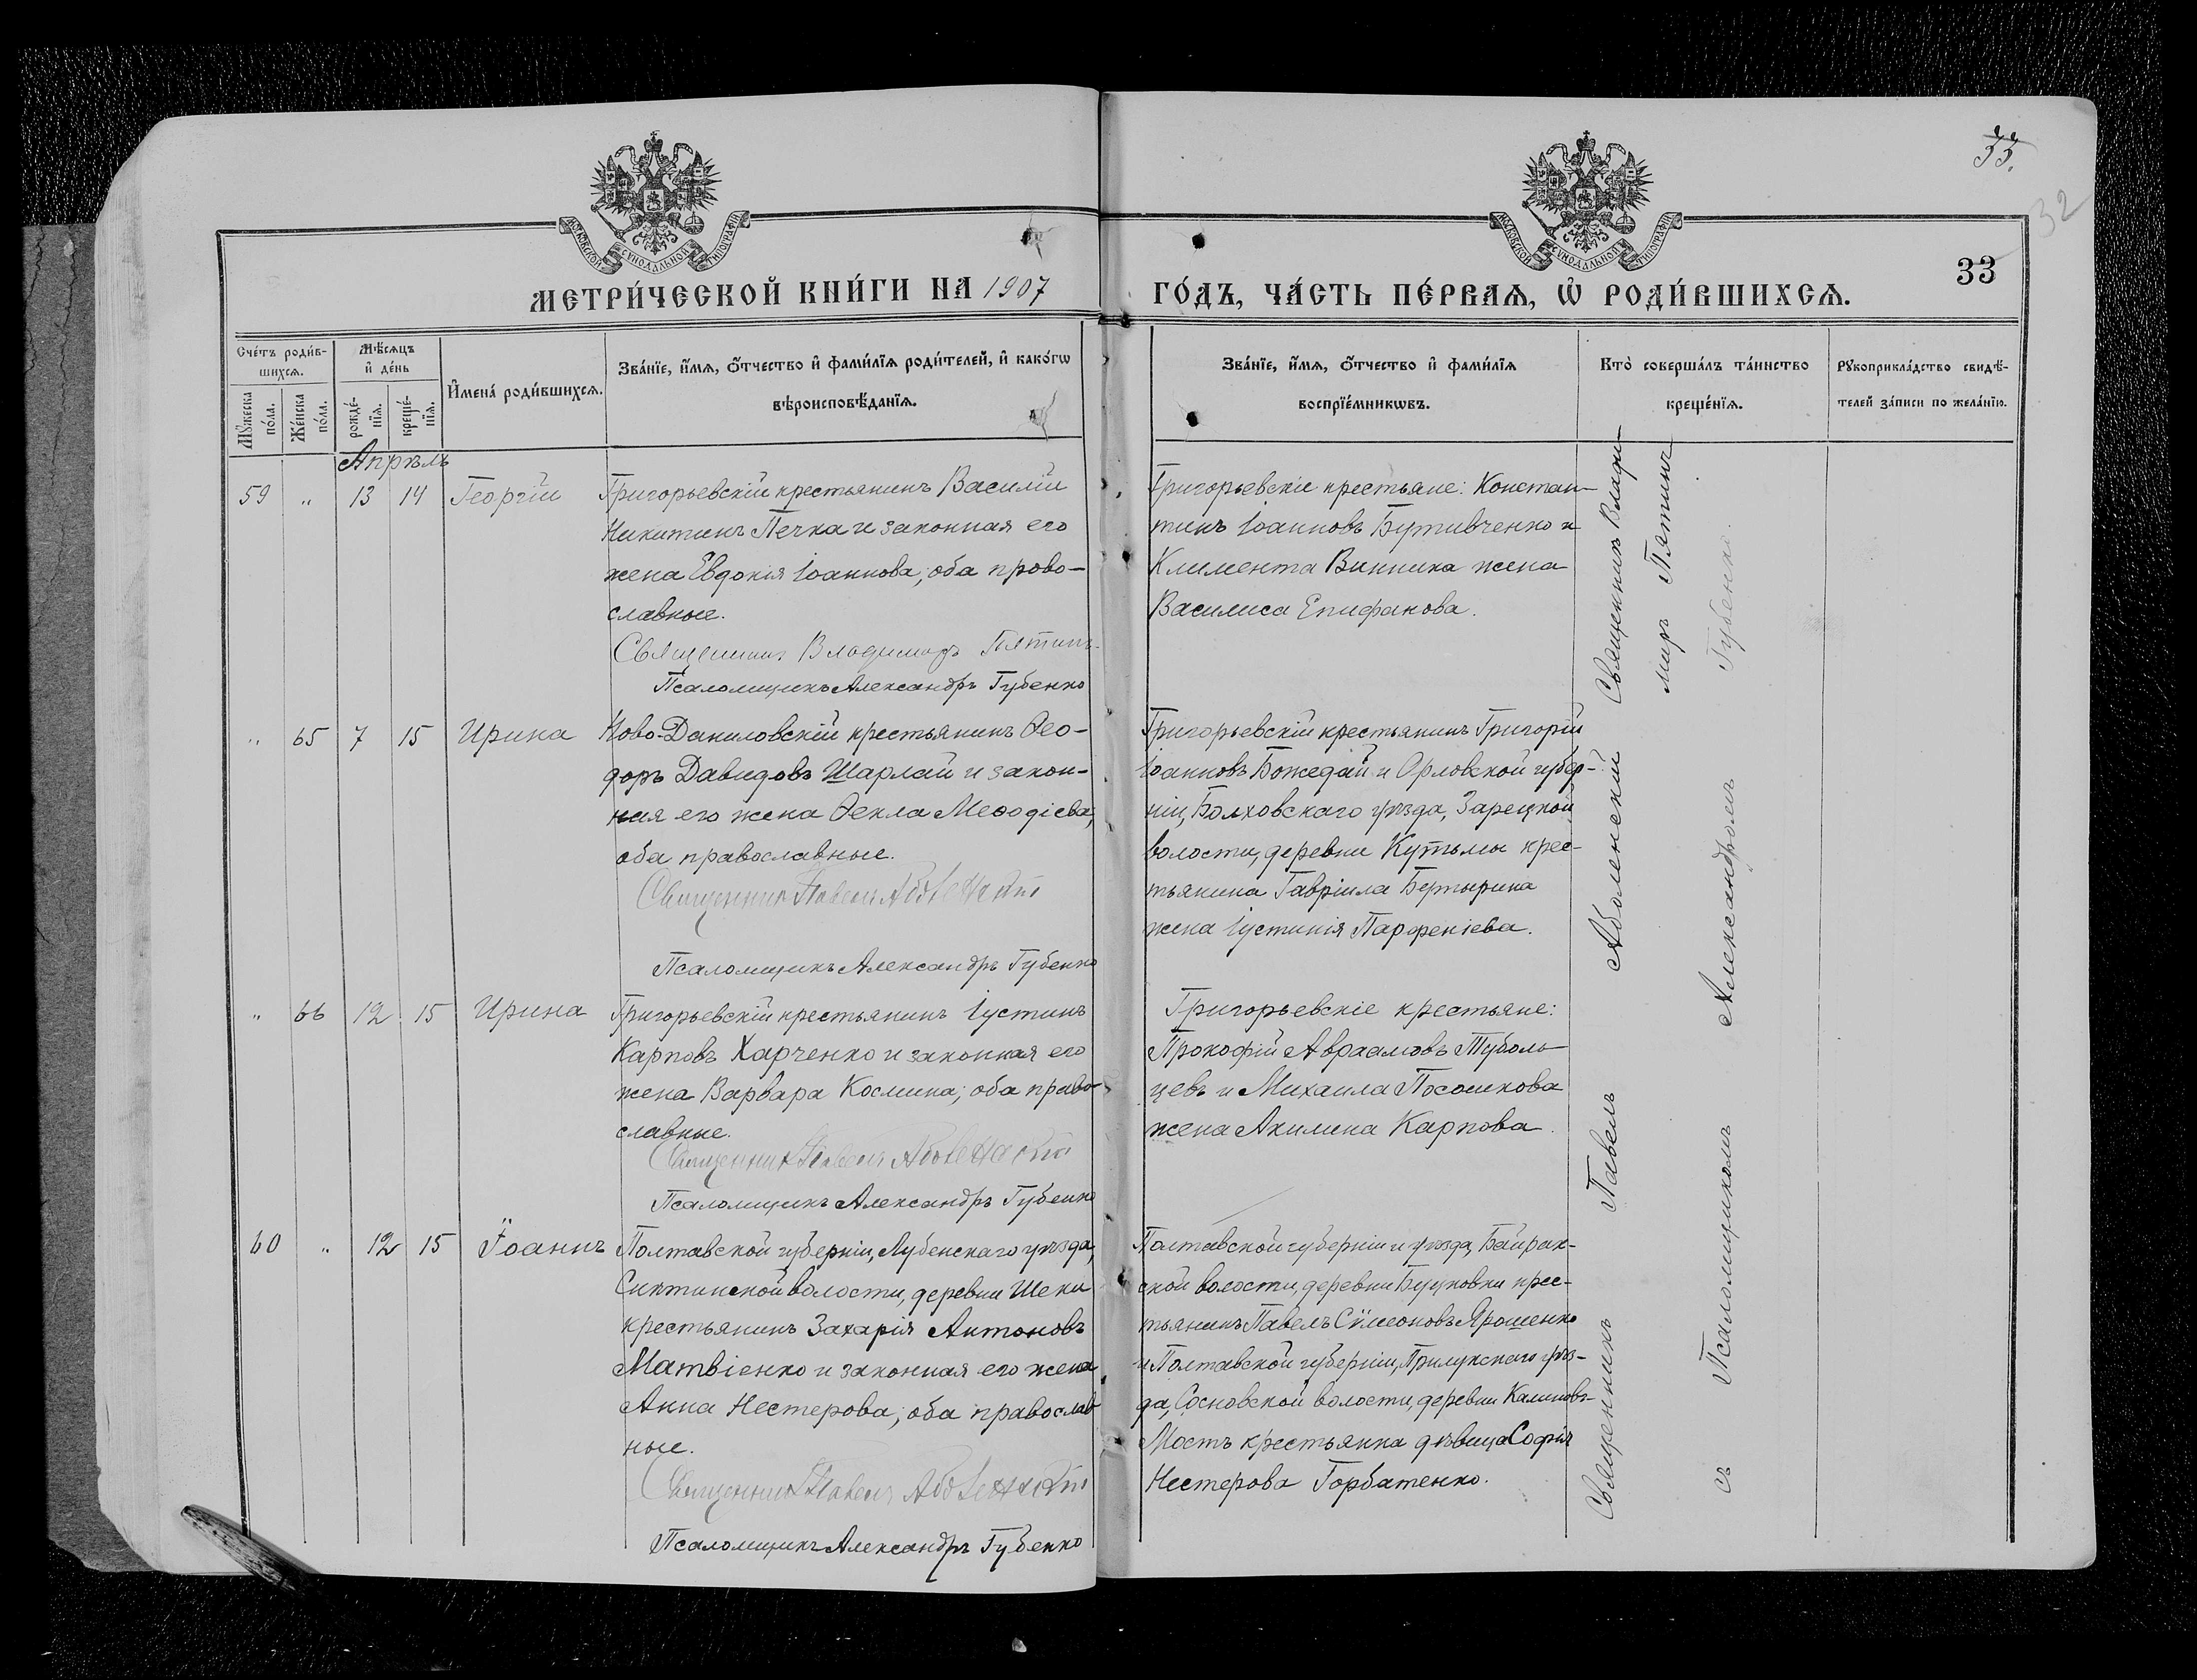 33.
32
33
МОСКОВСКОЙ СѴНОДАЛЬНОЙ ТИПОГРАФІИ
МОСКОВСКОЙ СѴНОДАЛЬНОЙ ТИПОГРАФІИ
МЕТРИ́ЧЕСКОЙ КНИ́ГИ НА 1907
ГО́ДЪ, ЧА́СТЬ ПЕ́РВАѦ, Ѡ҆ РОДИ́ВШИХСѦ.
Сче́тъ роди́в-
шихсѧ.
Мꙋ́жеска по́ла.
Же́нска по́ла.
Мѣ́сѧцъ
и҆ де́нь
рожде́-
нїѧ.
креще́-
нїѧ.
И҆мена̀ роди́вшихсѧ.
Зва́нїе, и҆́мѧ, ѻ҆́тчество и҆ фами́лїѧ роди́телей, и҆ како́гѡ
вѣроисповѣ́данїѧ.
Зва́нїе, и҆́мѧ, ѻ҆́тчество и҆ фами́лїѧ
воспрїе́мникѡвъ.
Кто̀ соверша́лъ та́инство
креще́нїѧ.
Рꙋкоприкла́дство свидѣ́-
телей за́писи по жела́нїю.
Апрѣль
59 " 13 14 Георгій
Григорьевскій крестьянинъ Василій
Никитинъ Печка и законная его
жена Евдокія Іоаннова; оба право-
славные.
Священникъ Владимиръ Пятинъ
Псаломщикъ Александръ Губенко
Григорьевскіе крестьяне: Констан-
тинъ Іоанновъ Бутивченко и
Климента Винника жена
Василиса Епифанова.
" 65 7 15 Ирина
Ново-Даниловскій крестьянинъ Ѳео-
доръ Давидовъ Шарлай и закон-
ная его жена Ѳекла Меѳодіева;
оба православные.
Священникъ Павелъ Аболенскій
Псаломщикъ Александръ Губенко
Григорьевскій крестьянинъ Григорій
Іоанновъ Божедай и Орловской губер-
ніи, Болховскаго уѣзда, Зарецкой
волости, деревни Кутьмы крес-
тьянина Гавріила Бутырина
жена Іустинія Парфеніева.
" 66 12 15 Ирина
Григорьевскій крестьянинъ Іустинъ
Карповъ Харченко и законная его
жена Варвара Космина; оба право-
славные.
Священникъ Павелъ Аболенскій
Псаломщикъ Александръ Губенко
Григорьевскіе крестьяне:
Прокофій Авраамовъ Туболь
цевъ и Михаила Посошкова
жена Акилина Карпова.
60 " 12 15 Іоаннъ
Полтавской губерніи, Лубенскаго уѣзда,
Снѣтинской волости, деревни Шеки
крестьянинъ Захарія Антоновъ
Матвіенко и законная его жена
Анна Нестерова; оба православ
ные.
Священникъ Павелъ Аболенскій
Псаломщикъ Александръ Губенко
Полтавской губерніи и уѣзда, Байрак-
ской волости, деревни крес-
тьянинъ Павелъ Сѵмеоновъ Ярошенко
и Полтавской губерніи, Прилукскаго уѣз-
да, Сосновской волости, деревни Калиновъ-
Мостъ крестьянка дѣвица Софія
Нестерова Горбатенко.
Священникъ Влади-
миръ Пятинъ
Священникъ Павелъ Аболенскій
съ Псаломщикомъ Александромъ Губенко.